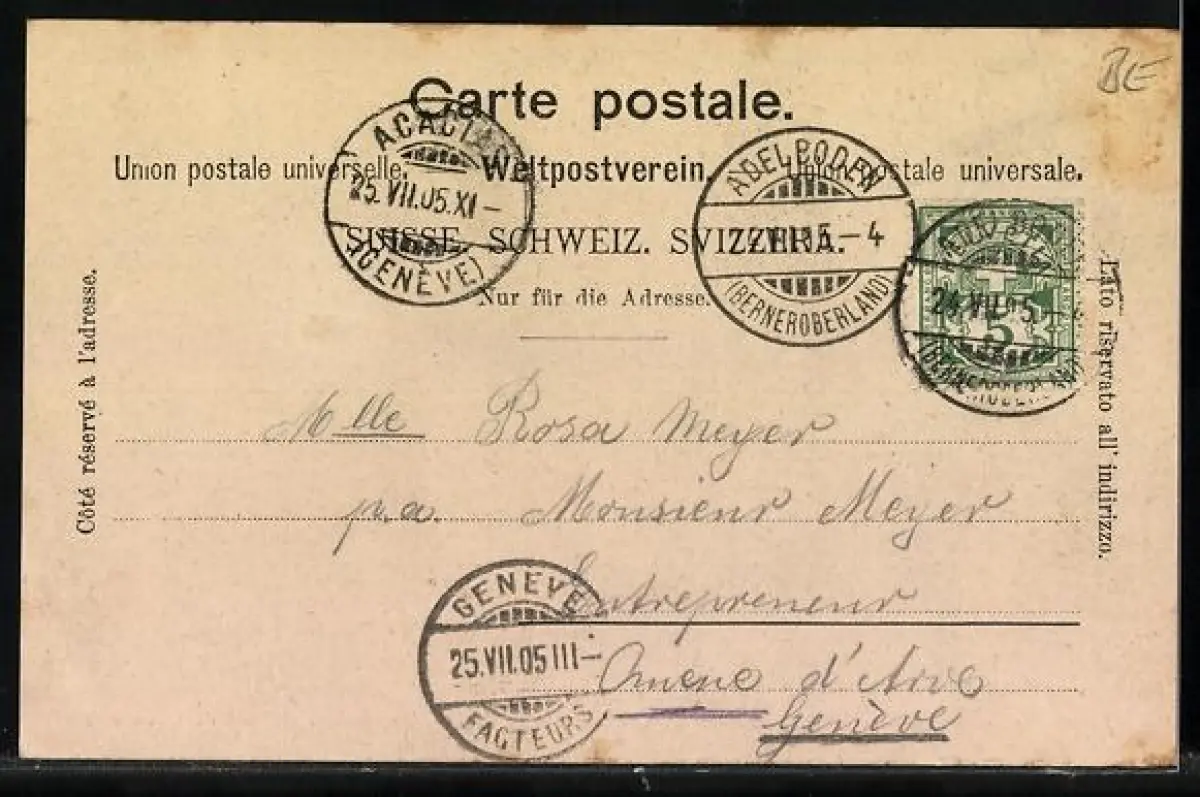 BE
Carte postale.
Union postale universelle. Weltpostverein. Union postale universale.
SUISSE. SCHWEIZ. SVIZZERA.
Nur für die Adresse.
ACACIAS
25.VII.05.XI–
(GENÈVE)
ADELBODEN
24.VII.05–4
(BERNEROBERLAND)
ADELBODEN
24.VII.05–
(BERNEROBERLAND)
5
Côté réservé à l'adresse.
Lato riservato all' indirizzo.
Mlle Rosa Meyer
p.a. Monsieur Meyer
Entrepreneur
d'Arve
Genève
GENÈVE
25.VII.05 III–
FACTEURS